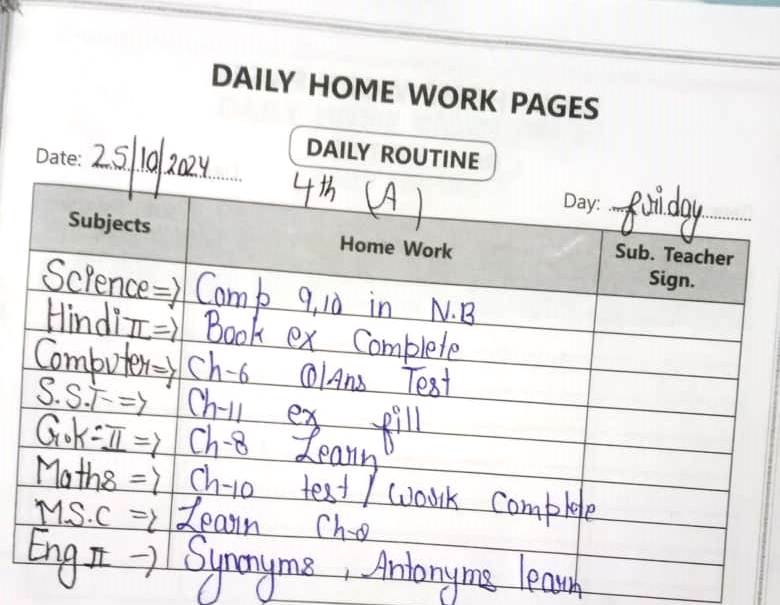 DAILY HOME WORK PAGES
DAILY ROUTINE
Date: 25/10/2024
4th (A)
Day: friday
Subjects Home Work Sub. Teacher Sign.
Science => Comp 9,10 in N.B
Hindi II => Book ex Complete
Computer => Ch-6 Q/Ans Test
S.S.T => Ch-11 ex fill
G.K-II => Ch-8 Learn
Maths => Ch-10 test / work Complete
M.S.C => Learn
Eng II -> Synonyms, Antonyms learn